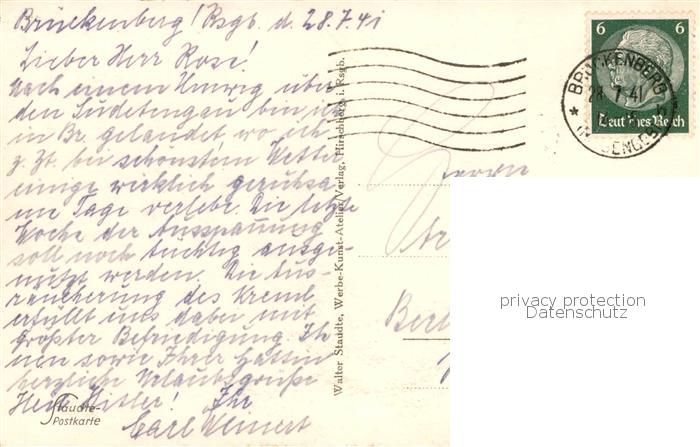 Brückenberg/Rsgb. d. 28.7.41
Lieber Herr Rose!
Nach einem Umweg über
den Sudetengau bin ich
in Br. gelandet wo ich
z. Zt. bei schönstem Wetter
einige wirklich geruhsa-
me Tage verlebe. Die letzte
Woche der Ausspannung
soll noch tüchtig ausge-
nützt werden. Die Aus-
räucherung des Kreml
erfüllt uns dabei mit
größter Befriedigung. Ih-
nen sowie Ihrer Gattin
herzliche Urlaubsgrüße
Heil Hitler! Ihr
Carl
Staudte-
Postkarte
Walter Staudte, Werbe-Kunst-Atelier/Verlag, Hirschberg i. Rsgb.
Herrn
Berl
6 6
Deutsches Reich
BRÜCKENBERG
28.7.41
privacy protection
Datenschutz